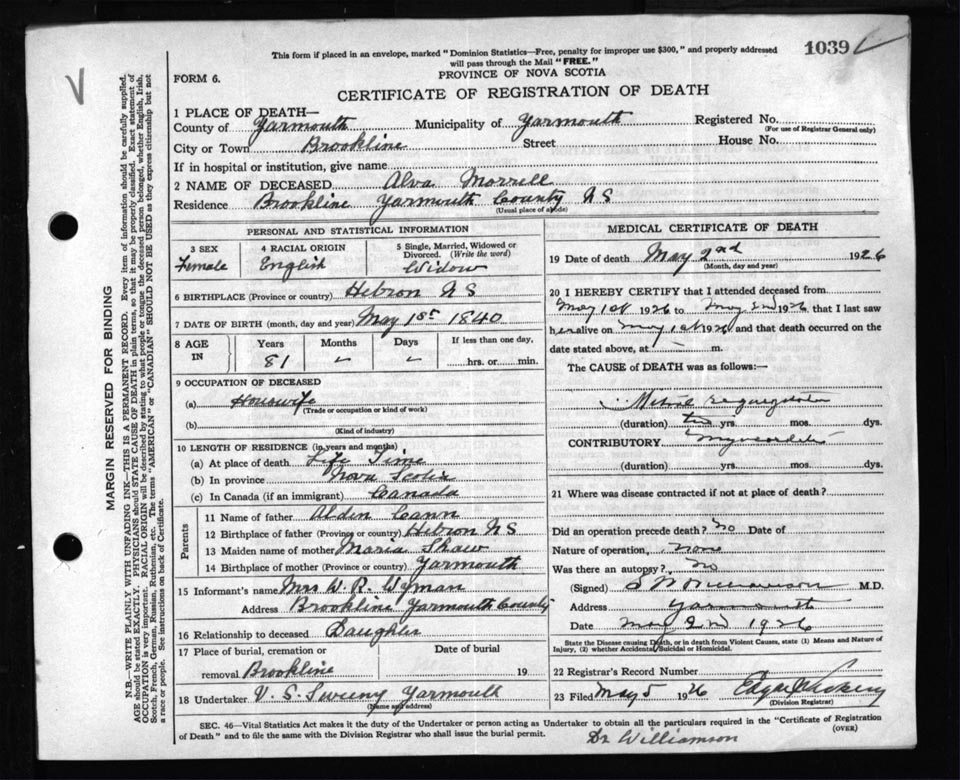 1039
This form if placed in an envelope, marked "Dominion Statistics—Free, penalty for improper use $300," and properly addressed
will pass through the Mail "FREE."
FORM 6.
PROVINCE OF NOVA SCOTIA
CERTIFICATE OF REGISTRATION OF DEATH
MARGIN RESERVED FOR BINDING
N.B.—WRITE PLAINLY WITH UNFADING INK—THIS IS A PERMANENT RECORD. Every item of information should be carefully supplied.
AGE should be stated EXACTLY. PHYSICIANS should STATE CAUSE OF DEATH in plain terms, so that it may be properly classified. Exact statement of
OCCUPATION is very important. RACIAL ORIGIN will be described by stating to what people or tongue the deceased person belonged, whether English, Irish,
Scotch, French, German, Russian, Ruthenian, etc. The terms "AMERICAN" or "CANADIAN" SHOULD NOT BE USED as they express citizenship but not
a race or people. See instructions on back of Certificate.
1 PLACE OF DEATH—
County of Yarmouth Municipality of Yarmouth Registered No.
(For use of Registrar General only)
City or Town Brookline Street House No.
If in hospital or institution, give name
2 NAME OF DECEASED Alva Morrell
Residence Brookline Yarmouth County N S
(Usual place of abode)
PERSONAL AND STATISTICAL INFORMATION
3 SEX 4 RACIAL ORIGIN 5 Single, Married, Widowed or
Divorced. (Write the word)
Female English Widow
6 BIRTHPLACE (Province or country) Hebron N S
7 DATE OF BIRTH (month, day and year) May 1st 1840
8 AGE IN Years Months Days If less than one day.
81 – – hrs. or min.
9 OCCUPATION OF DECEASED
(a) Housewife
(Trade or occupation or kind of work)
(b)
(Kind of industry)
10 LENGTH OF RESIDENCE (in years and months)
(a) At place of death Life Time
(b) In province Nova Scotia
(c) In Canada (if an immigrant) Canada
Parents
11 Name of father Alden Cann
12 Birthplace of father (Province or country) Hebron N S
13 Maiden name of mother Maria Shaw
14 Birthplace of mother (Province or country) Yarmouth
15 Informant's name Mrs W. R. Wyman
Address Brookline Yarmouth County
16 Relationship to deceased Daughter
17 Place of burial, cremation or Date of burial
removal Brookline 19
18 Undertaker V. S. Sweeny Yarmouth
(Name and address)
MEDICAL CERTIFICATE OF DEATH
19 Date of death May 2nd 1926
(Month, day and year)
20 I HEREBY CERTIFY that I attended deceased from
May 1st 1926 to May 2nd 1926 that I last saw
her alive on May 1st 1926 and that death occurred on the
date stated above, at – m.
The CAUSE of DEATH was as follows:—
Mitral regurgitation
(duration) yrs. mos. dys.
CONTRIBUTORY Myocarditis
(duration) yrs. mos. dys.
21 Where was disease contracted if not at place of death?
Did an operation precede death? No Date of
Nature of operation, none
Was there an autopsy? No
(Signed) M.D.
Address Yarmouth
Date May 2nd 1926
State the Disease causing Death, or in death from Violent Causes, state (1) Means and Nature of
Injury, (2) whether Accidental, Suicidal or Homicidal.
22 Registrar's Record Number
23 Filed May 5 1926 Edgar
(Division Registrar)
SEC. 46—Vital Statistics Act makes it the duty of the Undertaker or person acting as Undertaker to obtain all the particulars required in the "Certificate of Registration
of Death" and to file the same with the Division Registrar who shall issue the burial permit. (OVER)
Dr Williamson